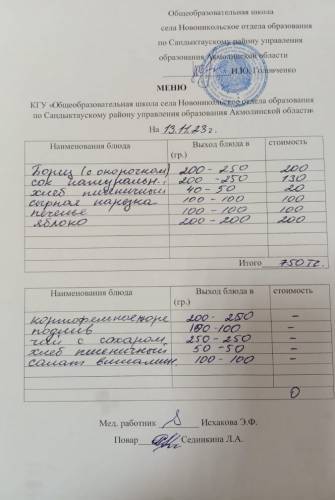 Общеобразовательная школа
села Новоникольское отдела образования
по Сандыктаускому району управления
образования Акмолинской области
И.Ю. Головченко
МЕНЮ
КГУ «Общеобразовательная школа села Новоникольское отдела образования
по Сандыктаускому району управления образования Акмолинской области»
На 13.11.23г.
Наименования блюда Выход блюда в (гр.) стоимость
Борщ (с окорочком) 200 - 250 200
сок натуральн. 200 - 250 130
хлеб пшеничный 40 - 50 20
сырная нарезка 100 - 100 100
печенье 100 - 100 100
яблоко 200 - 200 200
Итого 750 тг.
Наименования блюда Выход блюда в (гр.) стоимость
картофельное пюре 200 - 250 -
подлив 100 - 100 -
чай с сахаром 250 - 250 -
хлеб пшеничный 50 - 50 -
салат витамин. 100 - 100 -
0
Мед. работник Исхакова Э.Ф.
Повар Сединкина Л.А.